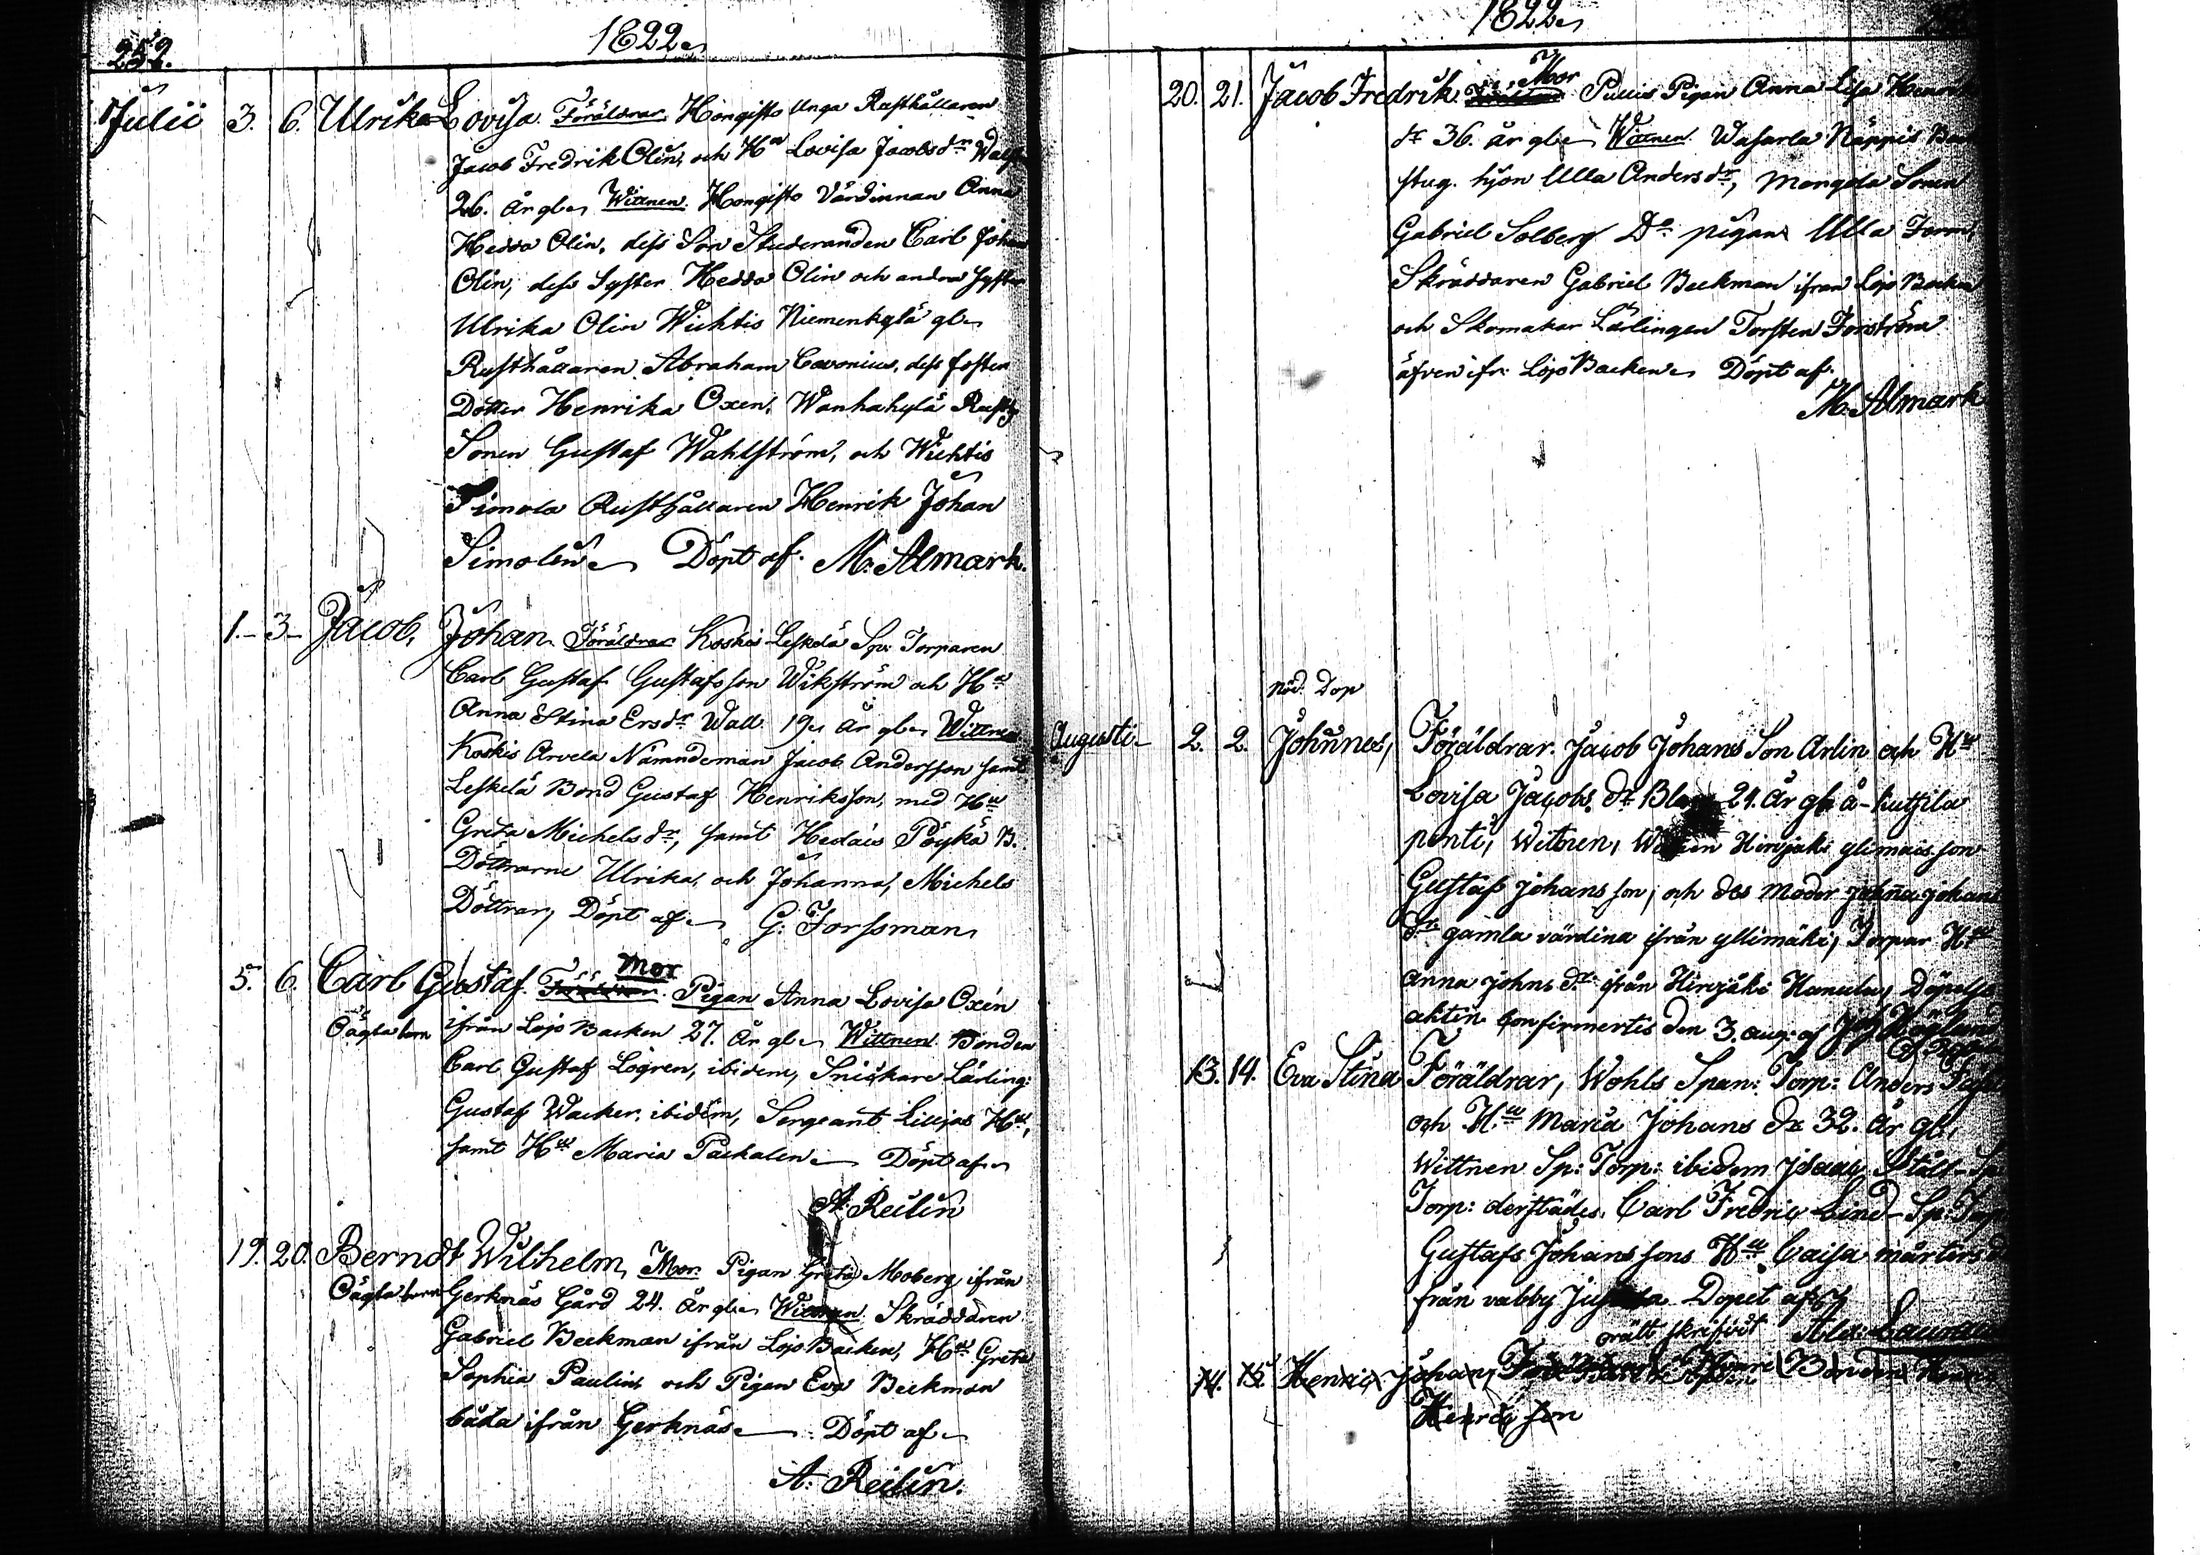 252.
1822
Julii 3. 6. Ulrika Lovisa. Föräldrar Hongisto Unga Rusthållaren
Jacob Fredrik Olin, och Hu Lovisa Jacobsdr
26. år gl. Wittnen. Hongisto Värdinnan Anna
Hedda Olin, dess Son Studeranden Carl Johan
Olin, dess Syster Hedda Olin och andra Syster
Ulrika Olin Wichtis Niemenkylä
Rusthållaren Abraham Cavonius, dess foster
Dotter Henrika Oxen, Wanhakylä Rusth
Sonen Gustaf Wahlström, och Wichtis
Simola Rusthållaren Henrik Johan
Simolin Döpt af. M. Almark.
1. 3. Jacob Johan. Föräldrar Koskis Leskelä Sp: Torparen
Carl Gustaf Gustafsson Wikström och Hu
Anna Stina Ersdr Wall 19 år gl. Wittnen
Koskis Arvela Nämndeman Jacob Andersson samt
Leskelä Bond Gustaf Henriksson, med Hu
Greta Michelsdr, samt Hedais Pöykä B.
Döttrarne Ulrika, och Johanna, Michels
Döttrar, Döpt af G. Forssman
Mor
5. 6. Carl Gustaf. Föräldrar. Pigan Anna Lovisa Oxén
Oägta barn ifrån Lojo Backen 27. år gl. Wittnen Bonden
Carl Gustaf Lögren, ibidem, Snickare Lärling:
Gustaf Wacker, ibidem, Sergeant Liljas Hu,
samt Hu Maria Packalen Döpt af
A. Reilin
19. 20. Berndt Wilhelm, Mor Pigan Greta Moberg ifrån
Oägta barn Gerknäs Gård 24. år gl. Wittnen Skräddaren
Gabriel Beckman ifrån Lojo Backen, Hu Greta
Sophia Paulin och Pigan Eva Beckman
båda ifrån Gerknäs Döpt af
A. Reilin.
1822
Mor
20. 21. Jacob Fredrik. Föräldrar Pigan Anna Lisa
dr 36. år gl. Wittnen. Wasarla Näppis
stug. hjon Ulla Andersdr, Mongola Sonen
Gabriel Solberg Do pigan Ulla
Skräddaren Gabriel Beckman ifrån Lojo Backen
och Skomakar Lärlingen Torsten Forström
äfven ifr. Lojo Backen Döpt af.
M. Almark
Nöd. Dop
Augusti 2. 2. Johannes, Föräldrar. Jacob Johans Son Arlin och Hu
Lovisa Jacobs dr 24. år gl. å-kutsila
ponti, Wittnen, Hirvjoki ylimäis son
Gustaf Johans son, och des moder Johana Johans
dr gamla värdina ifrån yllimäki, Torpar Hu
Anna Johns dr ifrån Hirvjoki Hanula, Döpelse
akten Confirmertis den 3. aug. af
13. 14. Eva Stina Föräldrar, Wohls Span: Torp: Anders
och Hu Maria Johans dr 32. år gl.
Wittnen Sp: Torp: ibidem Isaac Ståll Sp:
Torp: derstädes. Carl Fredric Lind Sp: Torp
Gustafs Johanssons Hu Caisa mårtens d
från vabby Dopet af
orätt skrifvit Alex:
14. 15 Henric Johan, Föräldrar Bonden
Henric son